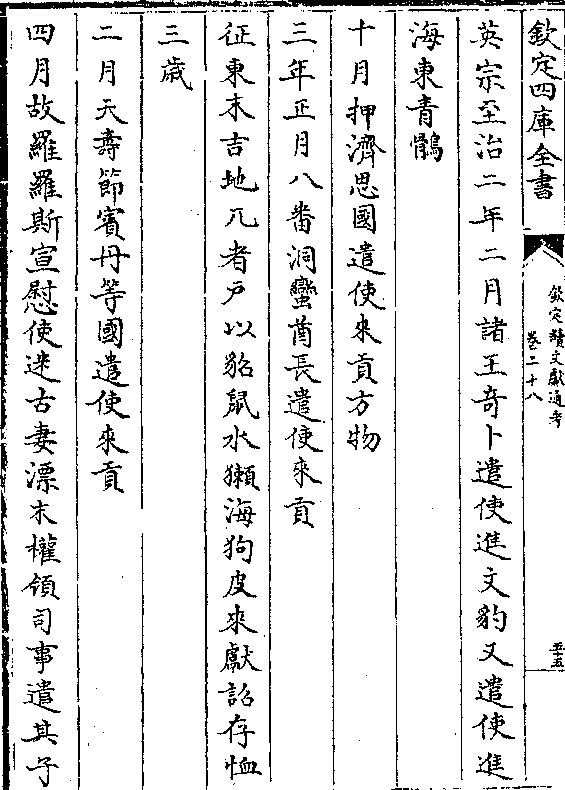 欽定四庫全書
欽定續文獻通考
卷二十八
五十五
英宗至治二年二月諸王奇卜遣使進文豹又遣使進
海東青鶻
十月押濟思國遣使來貢方物
三年正月八番洞蠻酋長遣使來貢
征東末吉地兀者戶以貂鼠水獺海狗皮來獻詔存恤
三歲
二月天壽節賓丹等國遣使來貢
四月故羅羅斯宣慰使述古妻漂末權領司事遣其子